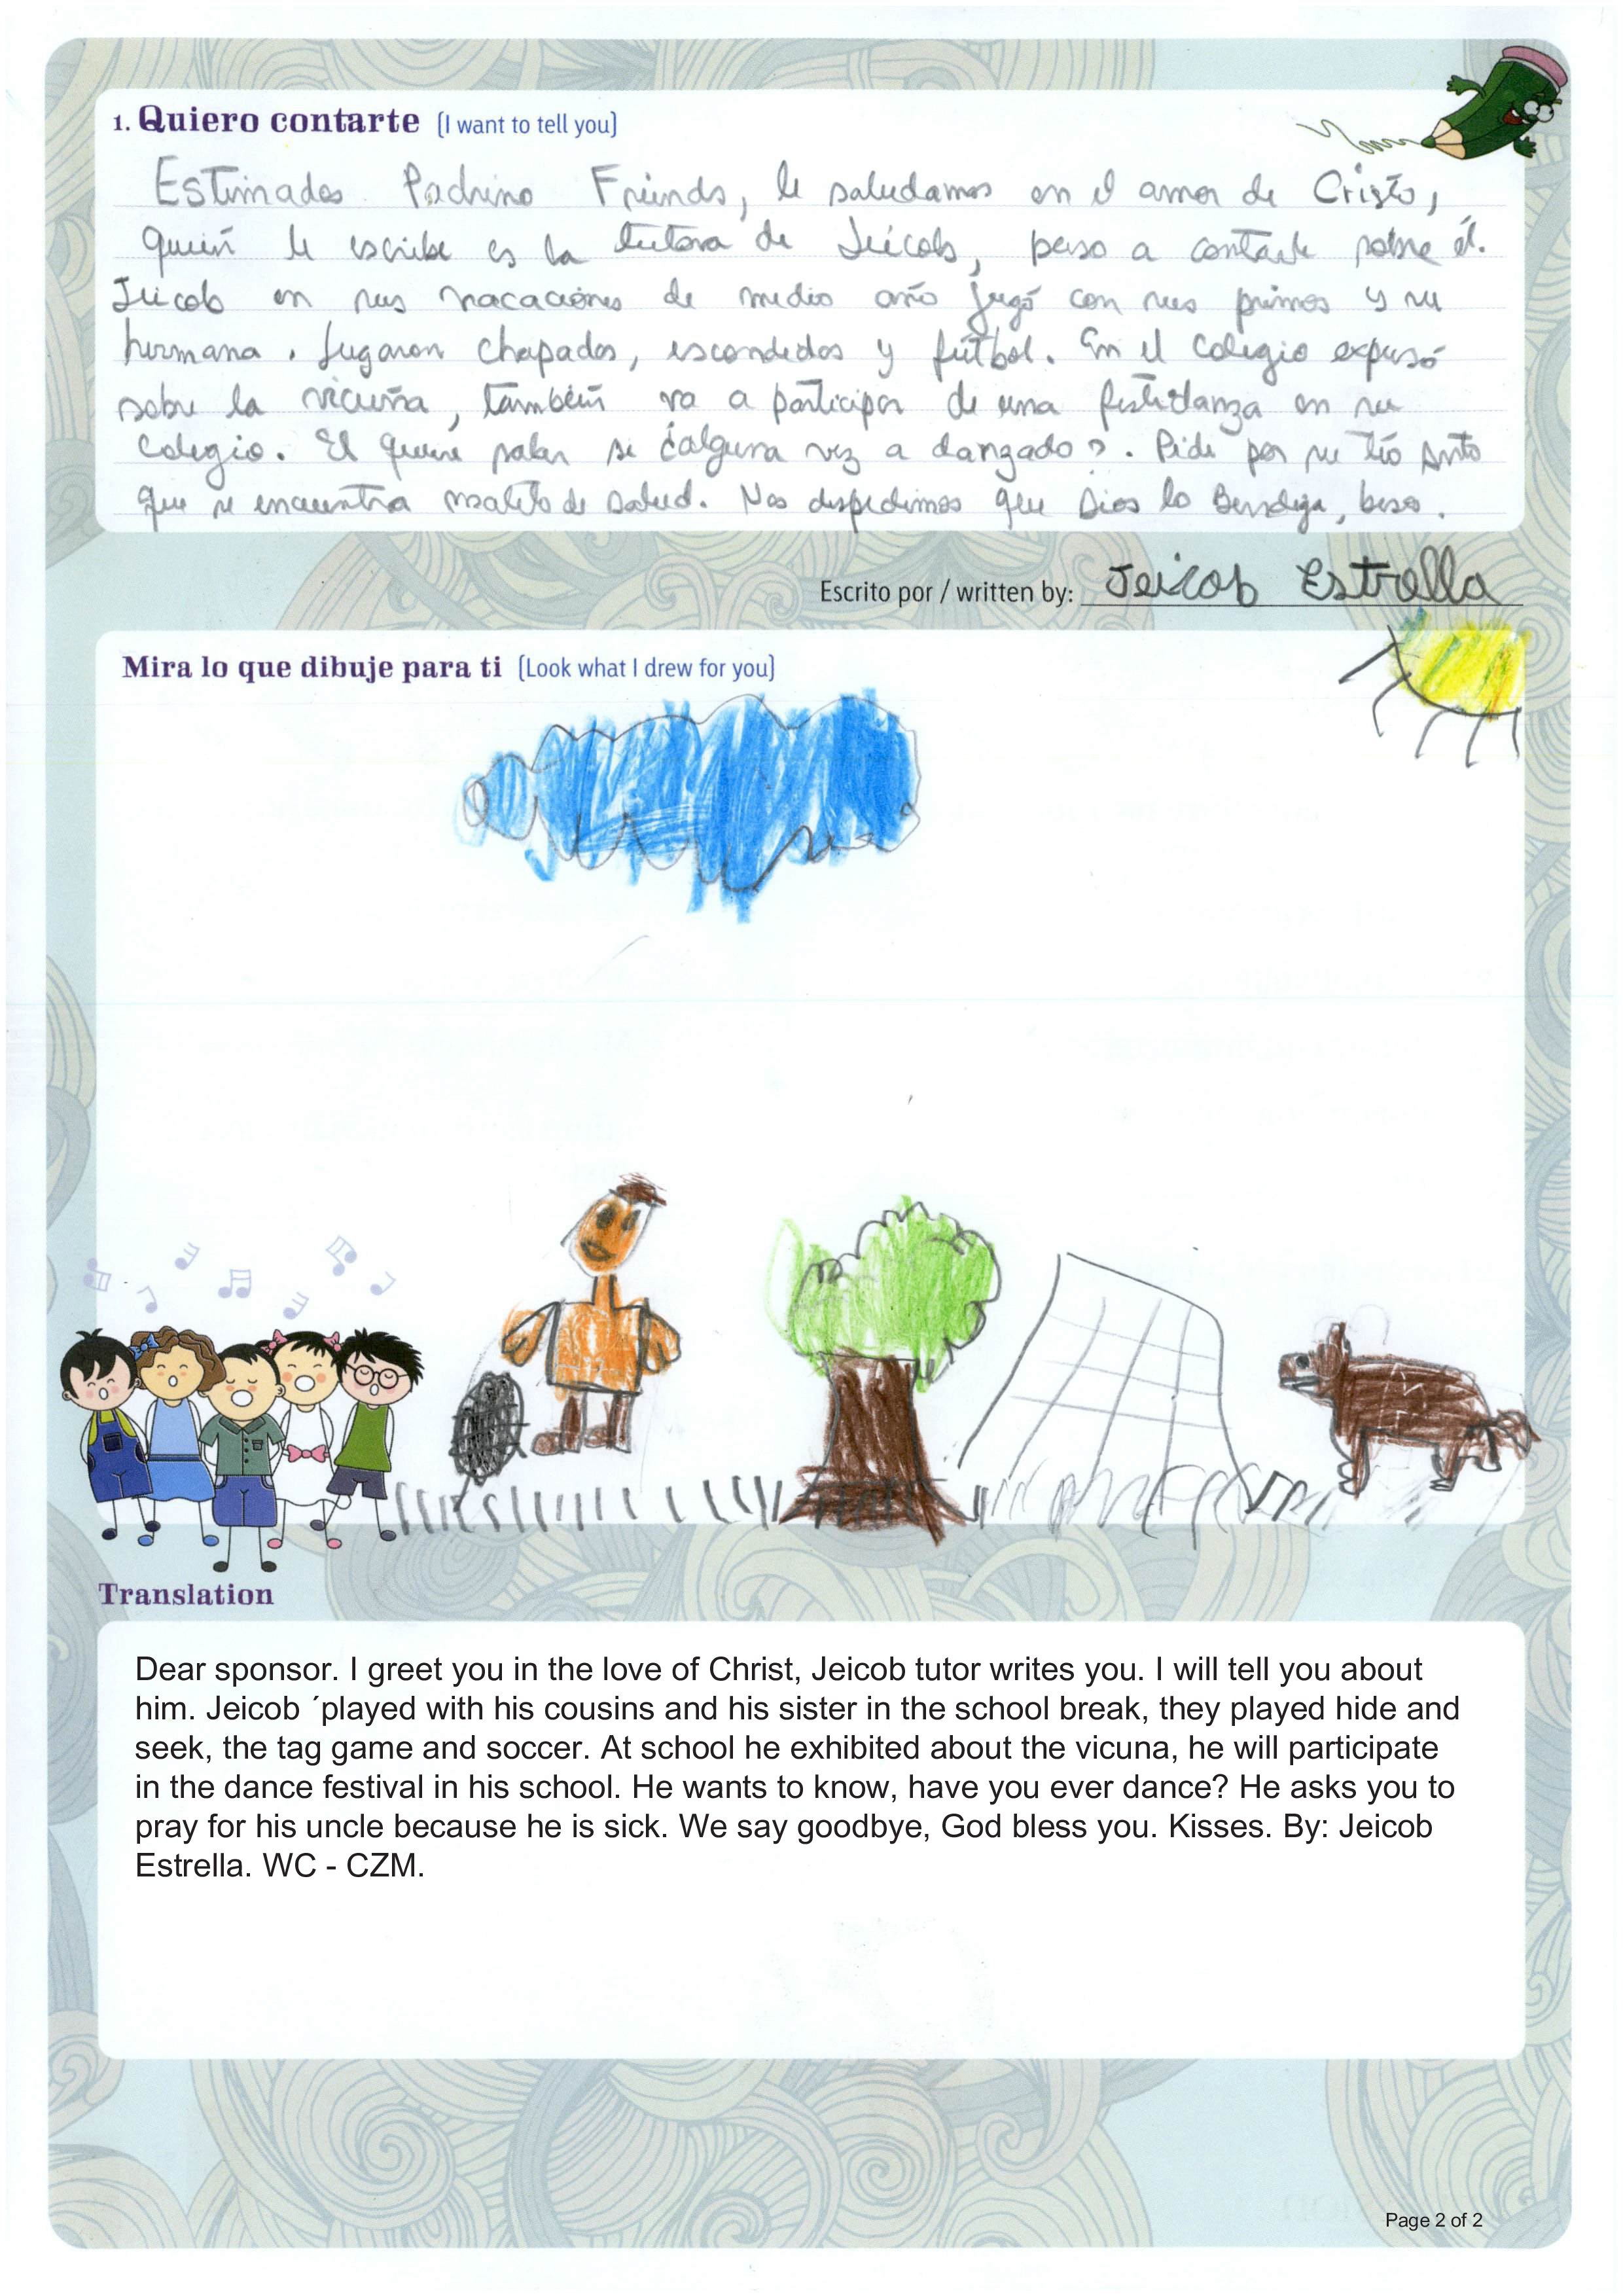 1. Quiero contarte (I want to tell you)
Estimados Padrino Friends, le saludamos en el amor de Cristo,
quien le escribe es la tutora de Jeicob, paso a contarle sobre él.
Jeicob en sus vacaciones de medio año jugó con sus primos y su
hermana. Jugaron chapados, escondidos y fútbol. En el colegio expusó
sobre la vicuña, también va a participar de una festidanza en su
colegio. El quiere saber si ¿alguna vez a danzado?. Pide por su tío
que se encuentra malito de salud. Nos despedimos que Dios lo Bendiga, besos.
Escrito por / written by: Jeicob Estrella
Mira lo que dibuje para ti (Look what I drew for you)
Translation
Dear sponsor. I greet you in the love of Christ, Jeicob tutor writes you. I will tell you about
him. Jeicob ´played with his cousins and his sister in the school break, they played hide and
seek, the tag game and soccer. At school he exhibited about the vicuna, he will participate
in the dance festival in his school. He wants to know, have you ever dance? He asks you to
pray for his uncle because he is sick. We say goodbye, God bless you. Kisses. By: Jeicob
Estrella. WC - CZM.
Page 2 of 2